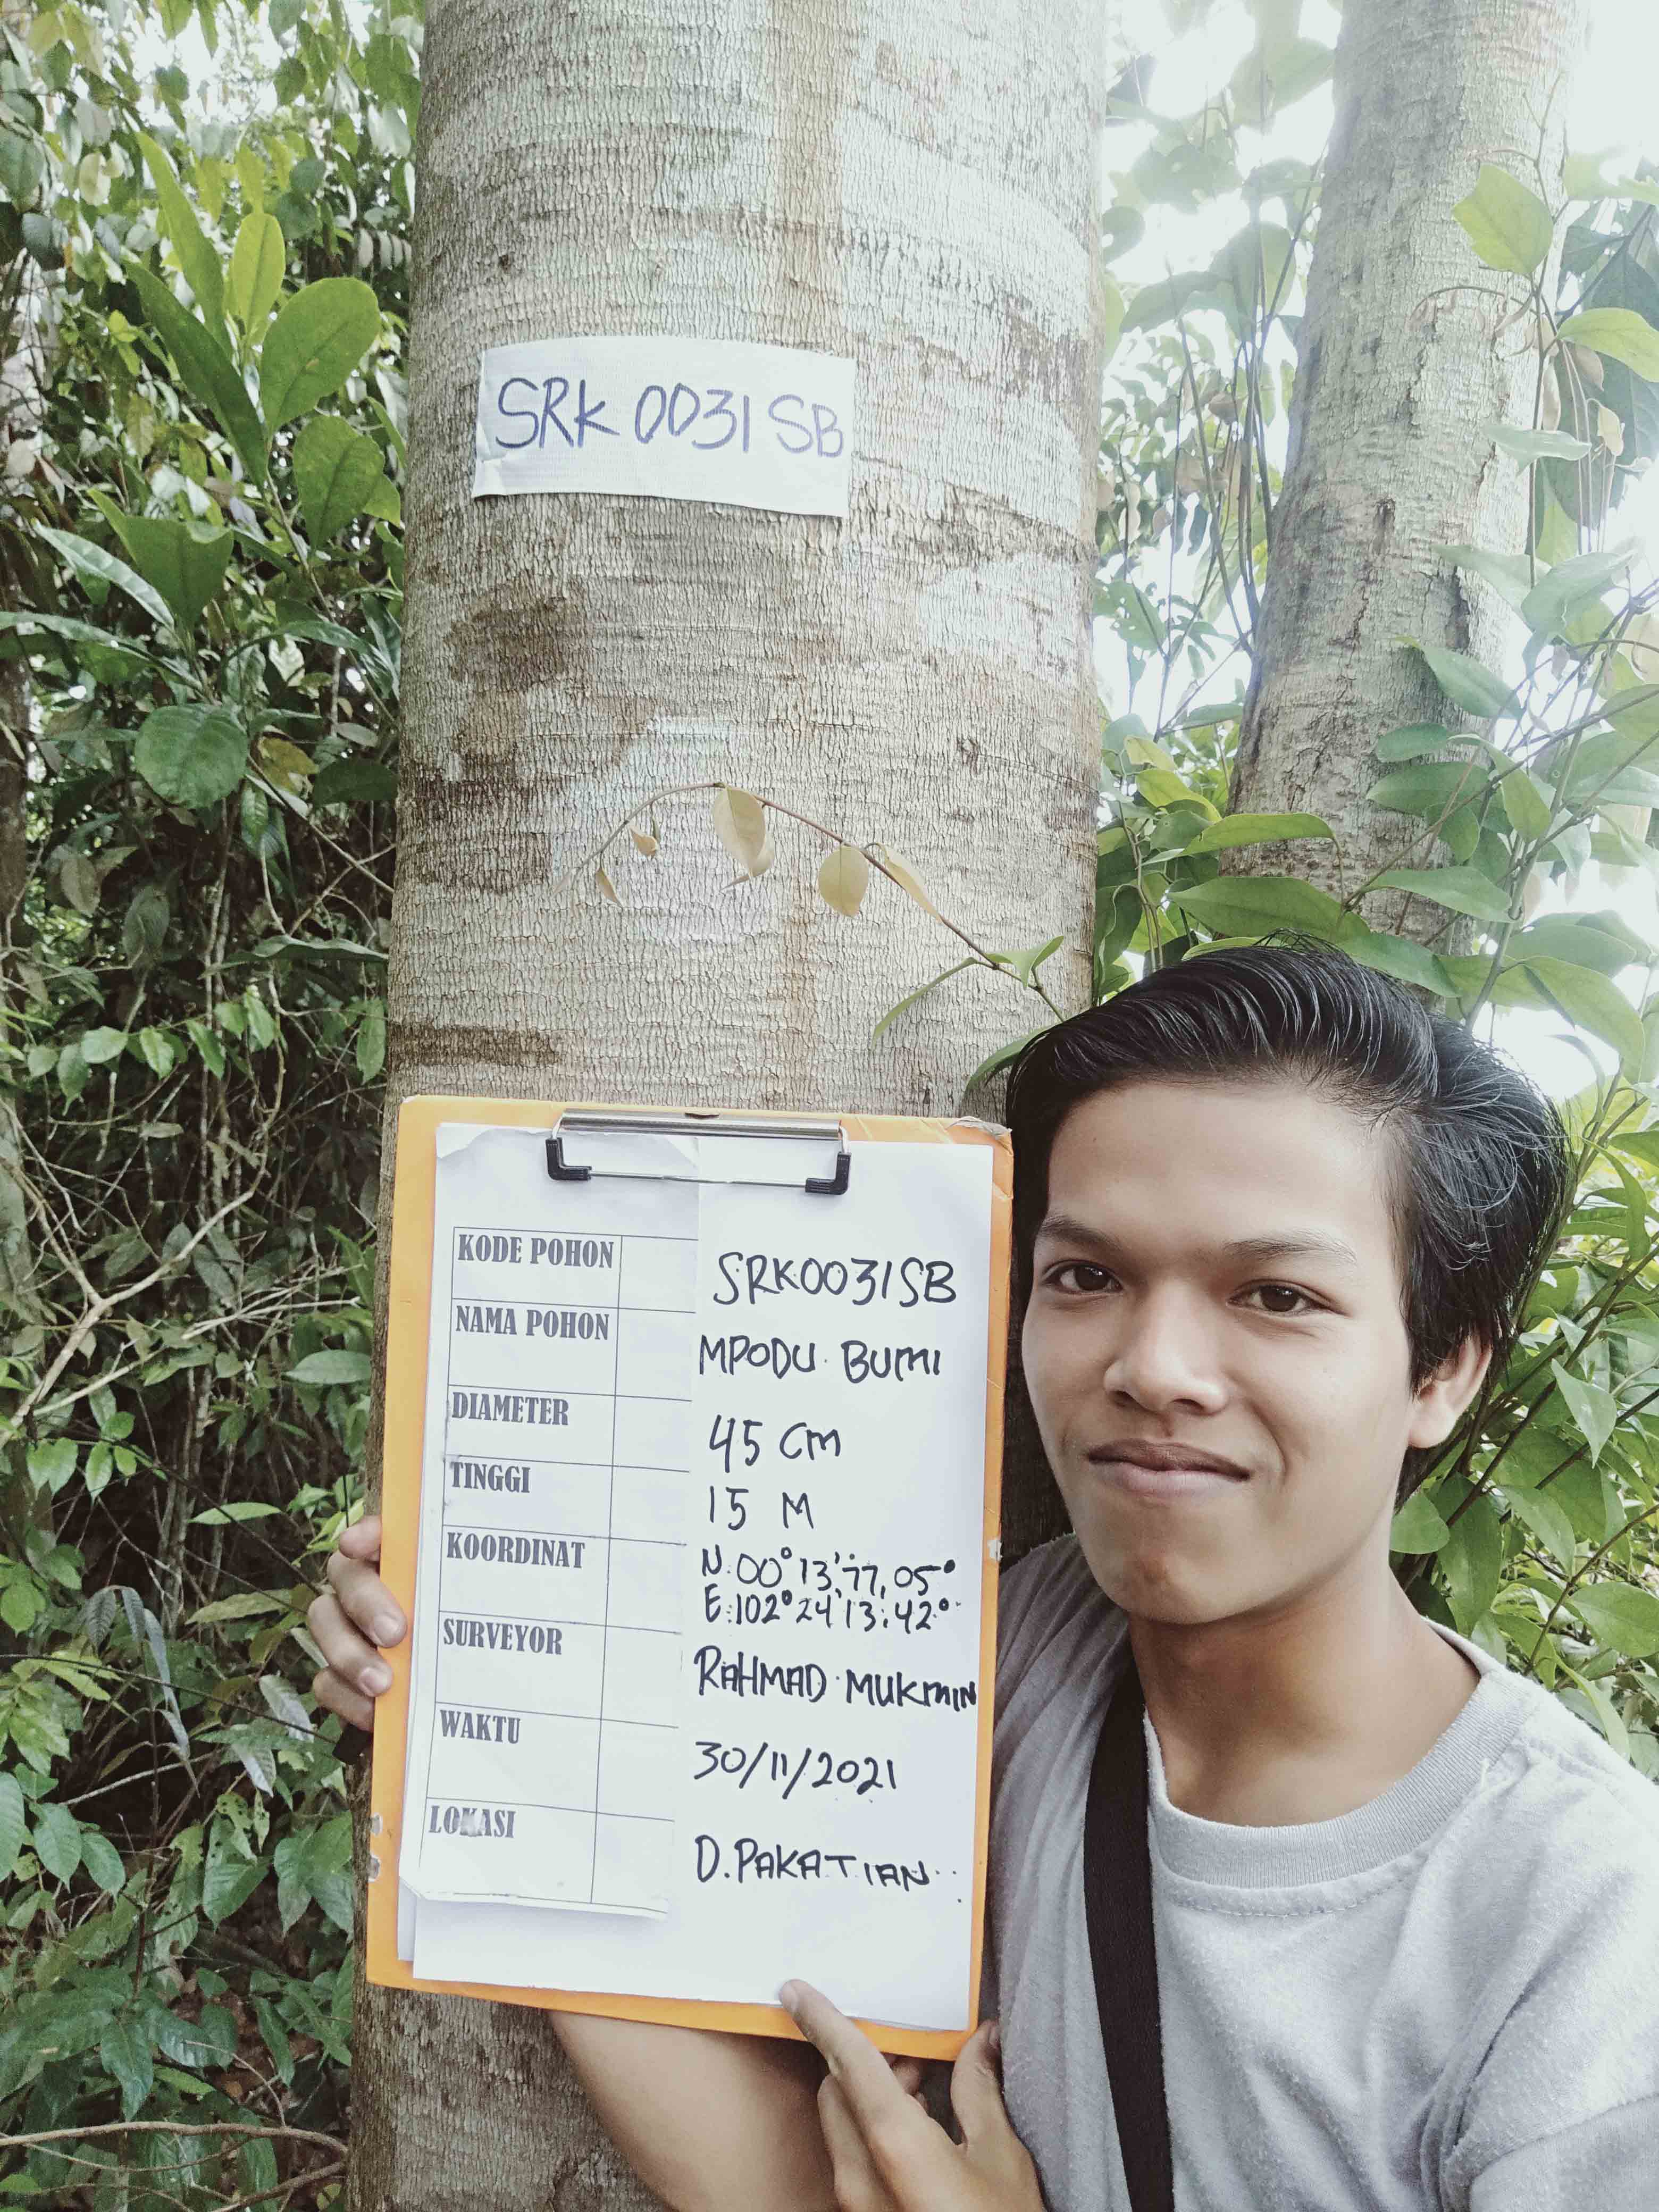 SRK 0031 SB
KODE POHON SRK0031SB
NAMA POHON MPODU BUMI
DIAMETER 45 CM
TINGGI 15 M
KOORDINAT N:00°13',77,05°
E:102°24'13:42°
SURVEYOR RAHMAD MUKMIN
WAKTU 30/11/2021
LOKASI D.PAKATIAN